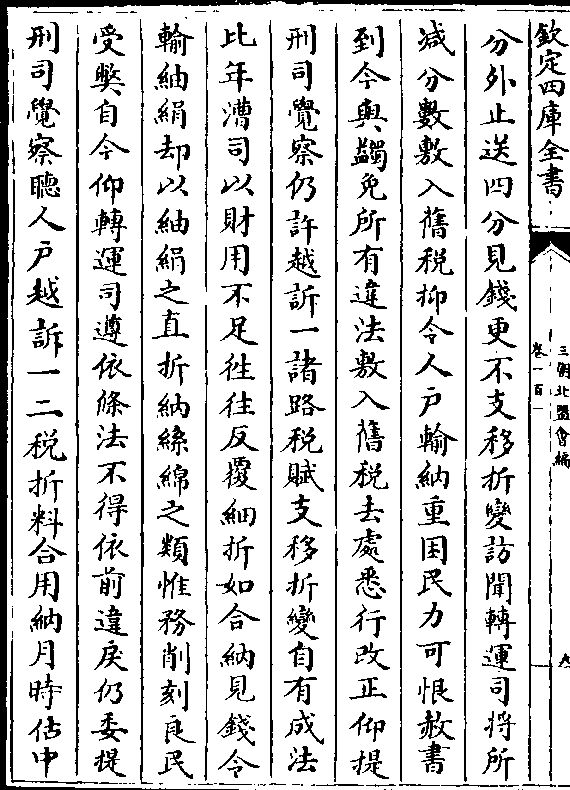 欽定四庫全書
三朝北盟會編
卷一百一
分外止送四分見錢更不支移折變訪聞轉運司將所
減分數敷入舊税抑令人户輸納重困民力可恨赦書
到今與蠲免所有違法敷入舊税去處悉行改正仰提
刑司覺察仍許越訴一諸路税賦支移折變自有成法
比年漕司以財用不足徃徃反覆細折如合納見錢令
輸紬絹却以紬絹之直折納絲綿之類惟務削刻良民
受弊自今仰轉運司遵依條法不得依前違戾仍委提
刑司覺察聽人户越訴一二税折料合用納月時估中